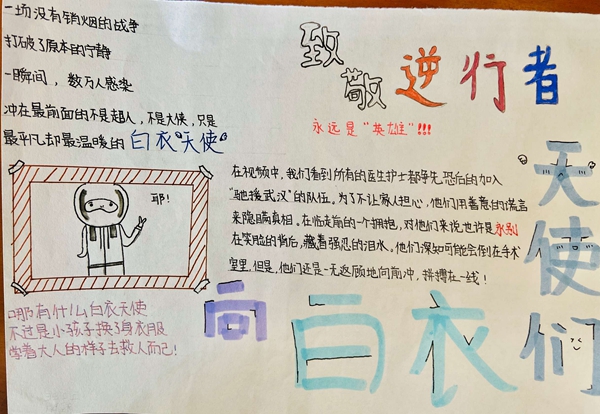 一场没有销烟的战争
打破了原本的宁静
一瞬间，数万人感染
冲在最前面的不是超人，不是大侠，只是
最平凡却最温暖的白衣天使
致敬逆行者
永远是"英雄"!!!
在视频中，我们看到所有的医生护士都争先恐后的加入
"驰援武汉"的队伍。为了不让家人担心，他们用善意的谎言
来隐瞒真相。在临走前的一个拥抱，对他们来说也许是永别
在笑脸的背后，藏着强忍的泪水。他们深知可能会倒在手术
室里，但是，他们还是一无返顾地向前冲，拼搏在一线！
耶！
哪有什么白衣天使
不过是小孩子换了身衣服
学着大人的样子去救人而己！
向白衣
天使们